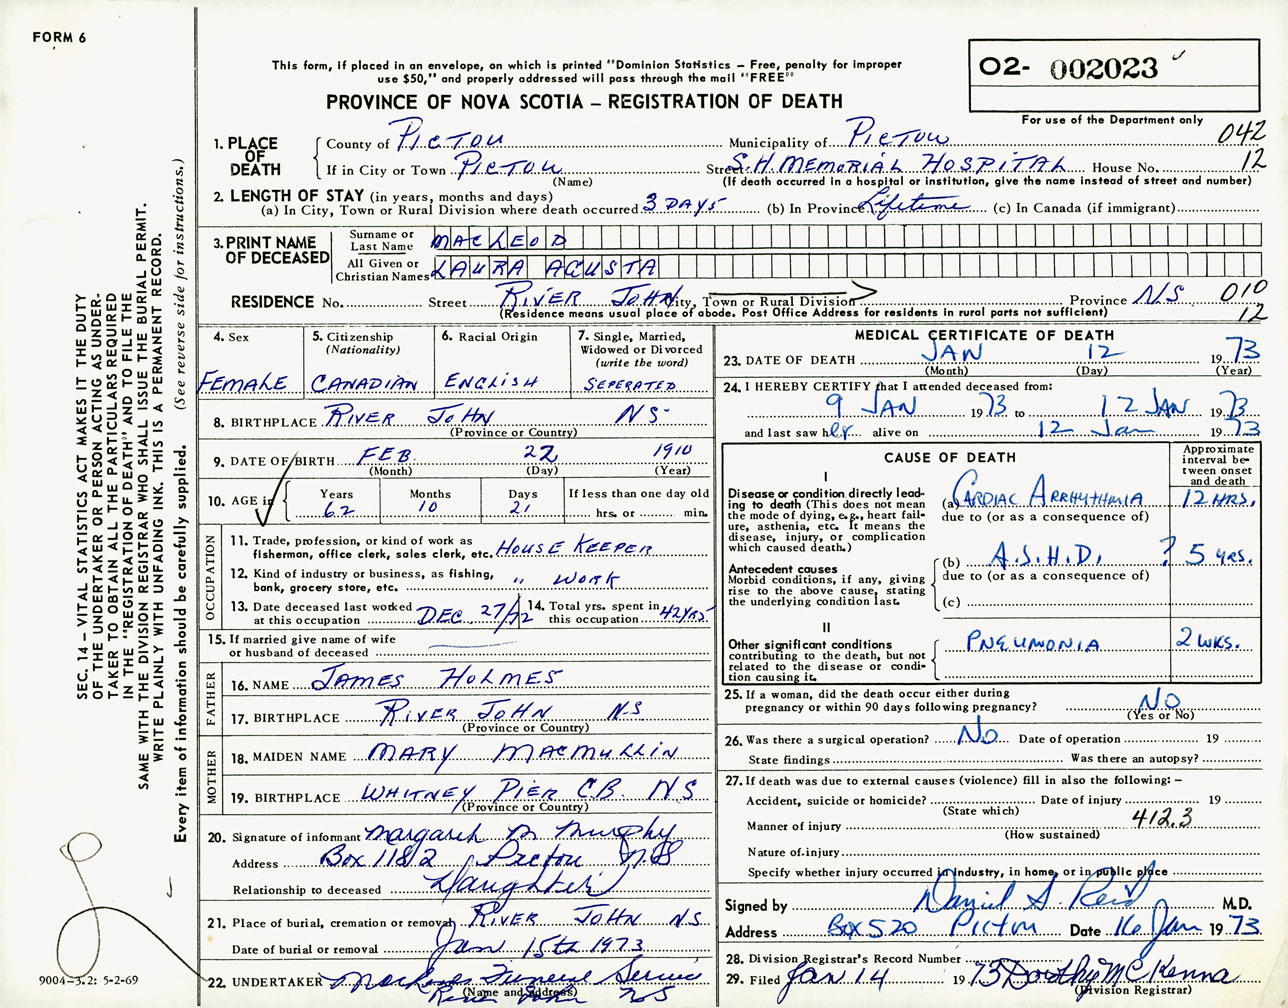 FORM 6
This form, if placed in an envelope, on which is printed "Dominion Statistics – Free, penalty for improper
use $50," and properly addressed will pass through the mail "FREE"
PROVINCE OF NOVA SCOTIA – REGISTRATION OF DEATH
02- 002023
For use of the Department only
1. PLACE OF DEATH County of PICTOU Municipality of PICTOU 042
If in City or Town PICTOU Street S.H. MEMORIAL HOSPITAL House No. 12
(Name) (If death occurred in a hospital or institution, give the name instead of street and number)
2. LENGTH OF STAY (in years, months and days)
(a) In City, Town or Rural Division where death occurred 3 DAYS (b) In Province Lifetime (c) In Canada (if immigrant)
3. PRINT NAME OF DECEASED Surname or Last Name MACLEOD
All Given or Christian Names LAURA AGUSTA
RESIDENCE No. Street RIVER JOHN City, Town or Rural Division Province N.S. 010
(Residence means usual place of abode. Post Office Address for residents in rural parts not sufficient) 12
4. Sex 5. Citizenship 6. Racial Origin 7. Single, Married,
(Nationality) Widowed or Divorced
(write the word)
FEMALE CANADIAN ENGLISH SEPERATED
8. BIRTHPLACE RIVER JOHN NS
(Province or Country)
9. DATE OF BIRTH FEB. 22 1910
(Month) (Day) (Year)
10. AGE in Years Months Days If less than one day old
62 10 21 hrs. or min.
OCCUPATION
11. Trade, profession, or kind of work as
fisherman, office clerk, sales clerk, etc. HOUSE KEEPER
12. Kind of industry or business, as fishing,
bank, grocery store, etc. " WORK
13. Date deceased last worked at this occupation DEC. 27/72 14. Total yrs. spent in this occupation 42 YRS
15. If married give name of wife
or husband of deceased
FATHER
16. NAME JAMES HOLMES
17. BIRTHPLACE RIVER JOHN N.S
(Province or Country)
MOTHER
18. MAIDEN NAME MARY MACMULLIN
19. BIRTHPLACE WHITNEY PIER C.B. N.S
(Province or Country)
20. Signature of informant Margaret M Murphy
Address Box 1182 Pictou NS
Relationship to deceased Daughter
21. Place of burial, cremation or removal RIVER JOHN N.S
Date of burial or removal Jan 15th 1973
22. UNDERTAKER Funeral Service
(Name and address) River John NS
MEDICAL CERTIFICATE OF DEATH
23. DATE OF DEATH JAN 12 1973
(Month) (Day) (Year)
24. I HEREBY CERTIFY that I attended deceased from:
9 JAN 1973 to 12 JAN 1973
and last saw her alive on 12 Jan 1973
CAUSE OF DEATH
Approximate interval between onset and death
I
Disease or condition directly lead-
ing to death (This does not mean
the mode of dying, e.g., heart fail-
ure, asthenia, etc. It means the
disease, injury, or complication
which caused death.)
(a) CARDIAC ARRHYTHMIA 12 HRS.
due to (or as a consequence of)
Antecedent causes
Morbid conditions, if any, giving
rise to the above cause, stating
the underlying condition last.
(b) A.S.H.D. ? 5 YRS.
due to (or as a consequence of)
(c)
II
Other significant conditions
contributing to the death, but not
related to the disease or condi-
tion causing it.
PNEUMONIA 2 WKS.
25. If a woman, did the death occur either during
pregnancy or within 90 days following pregnancy? NO
(Yes or No)
26. Was there a surgical operation? No Date of operation 19
State findings Was there an autopsy?
27. If death was due to external causes (violence) fill in also the following: –
Accident, suicide or homicide? Date of injury 19
(State which)
Manner of injury 412.3
(How sustained)
Nature of injury
Specify whether injury occurred in industry, in home, or in public place
Signed by Daniel S. Reid M.D.
Address Box 520 Pictou Date 16 Jan 1973
28. Division Registrar's Record Number
29. Filed Jan 14 1973 Dorothy McKenna
(Division Registrar)
SEC. 14 – VITAL STATISTICS ACT MAKES IT THE DUTY
OF THE UNDERTAKER OR PERSON ACTING AS UNDER-
TAKER TO OBTAIN ALL THE PARTICULARS REQUIRED
IN THE "REGISTRATION OF DEATH" AND TO FILE THE
SAME WITH THE DIVISION REGISTRAR WHO SHALL ISSUE THE BURIAL PERMIT.
WRITE PLAINLY WITH UNFADING INK. THIS IS A PERMANENT RECORD.
Every item of information should be carefully supplied. (See reverse side for instructions.)
9004-3.2: 5-2-69